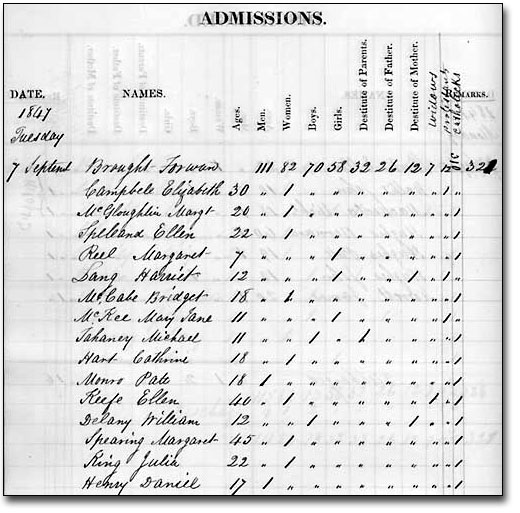 ADMISSIONS.
DATE. NAMES. Ages. Men. Women. Boys. Girls. Destitute of Parents. Destitute of Father. Destitute of Mother. Widows Protestants Catholics REMARKS.
1847
Tuesday
7 Septemr Brought Forward 111 82 70 58 32 26 12 7 321
Campbell Elizabeth 30 " 1 " " " " " " 1 "
McGloughlin Margt 20 " 1 " " " " " " " 1
Spelleand Ellen 22 " 1 " " " " " " " 1
Reel Margaret 7 " " " 1 " " " " " 1
Lang Harriet 12 " " " 1 " " 1 " 1 "
McCabe Bridget 18 " 1 " " " " " " " 1
McKee Mary Jane 11 " " " 1 " " " " 1 "
Tahaney Michael 11 " " 1 " 1 " " " " 1
Hart Cathrine 18 " 1 " " " " " " " 1
Monro Pate 18 1 " " " " " " " " 1
Keefe Ellen 40 " 1 " " " " " 1 " 1
Delany William 12 " " 1 " " " 1 " " 1
Spearing Margaret 45 " 1 " " " " " " " 1
King Julia 22 " 1 " " " " " " " 1
Henry Daniel 17 1 " " " " " " " " 1